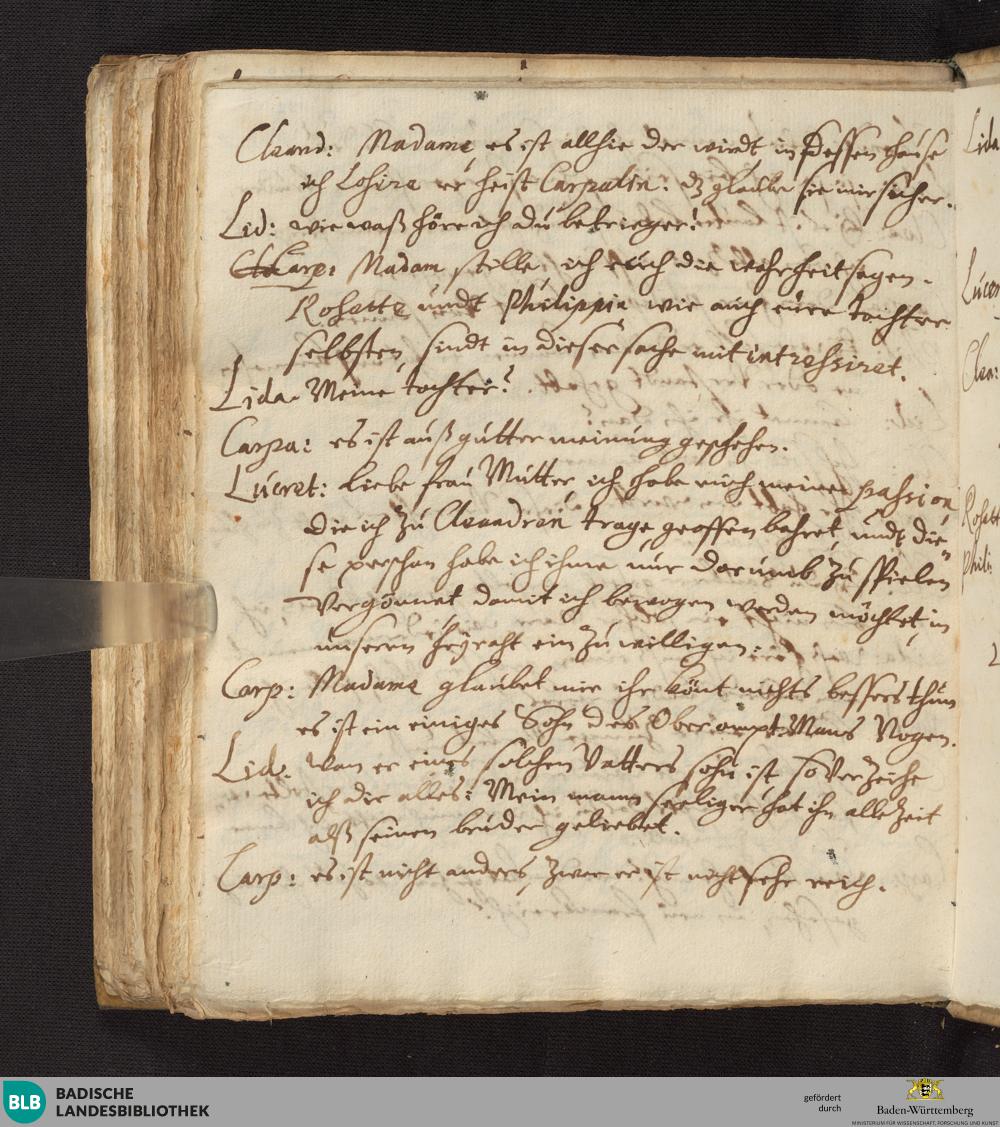 Cleand: Madame, es ist allhie der wirdt, in dessen hause
ich Losire er heist Carpalin: dz glaube sie mir sicher.
Lid: wie waß höre ich du betrieger!
Carp: Madam stille, ich euch die wahrheit sagen.
Rosette undt Philippin wie auch eüre tochter
selbsten, sindt in dieser sache mit intressiret.
Lida. Meine tochter?
Carpa: es ist auß gutter meinung geschehen.
Lucret: liebe frau Mutter, ich habe euch meine passion
die ich zu Cleandren trage, geoffenbahret, undt die-
se persohn habe ich ihme nur darumb zu spielen
Vergönnet damit ich bewogen werden möchtet, in
unseren heÿraht ein zu willigen.
Carp: Madame glaubet mir ihr könt nichts bessers thun
es ist ein einiges Sohn des Ober ampt Mans Nogen.
Lid. wan er eines solchen Vatters sohn ist, so Verzeihe
ich dir alles: Mein mann seeliger hat ihn alle Zeit
alß seinen bruder geliebet.
Carp: es ist nicht anders, zwar er ist nicht sehr reich.
Lida
Lucre
Clea:
Rosett
Phili:
BLB
BADISCHE
LANDESBIBLIOTHEK
gefördert
durch
Baden-Württemberg
MINISTERIUM FÜR WISSENSCHAFT, FORSCHUNG UND KUNST